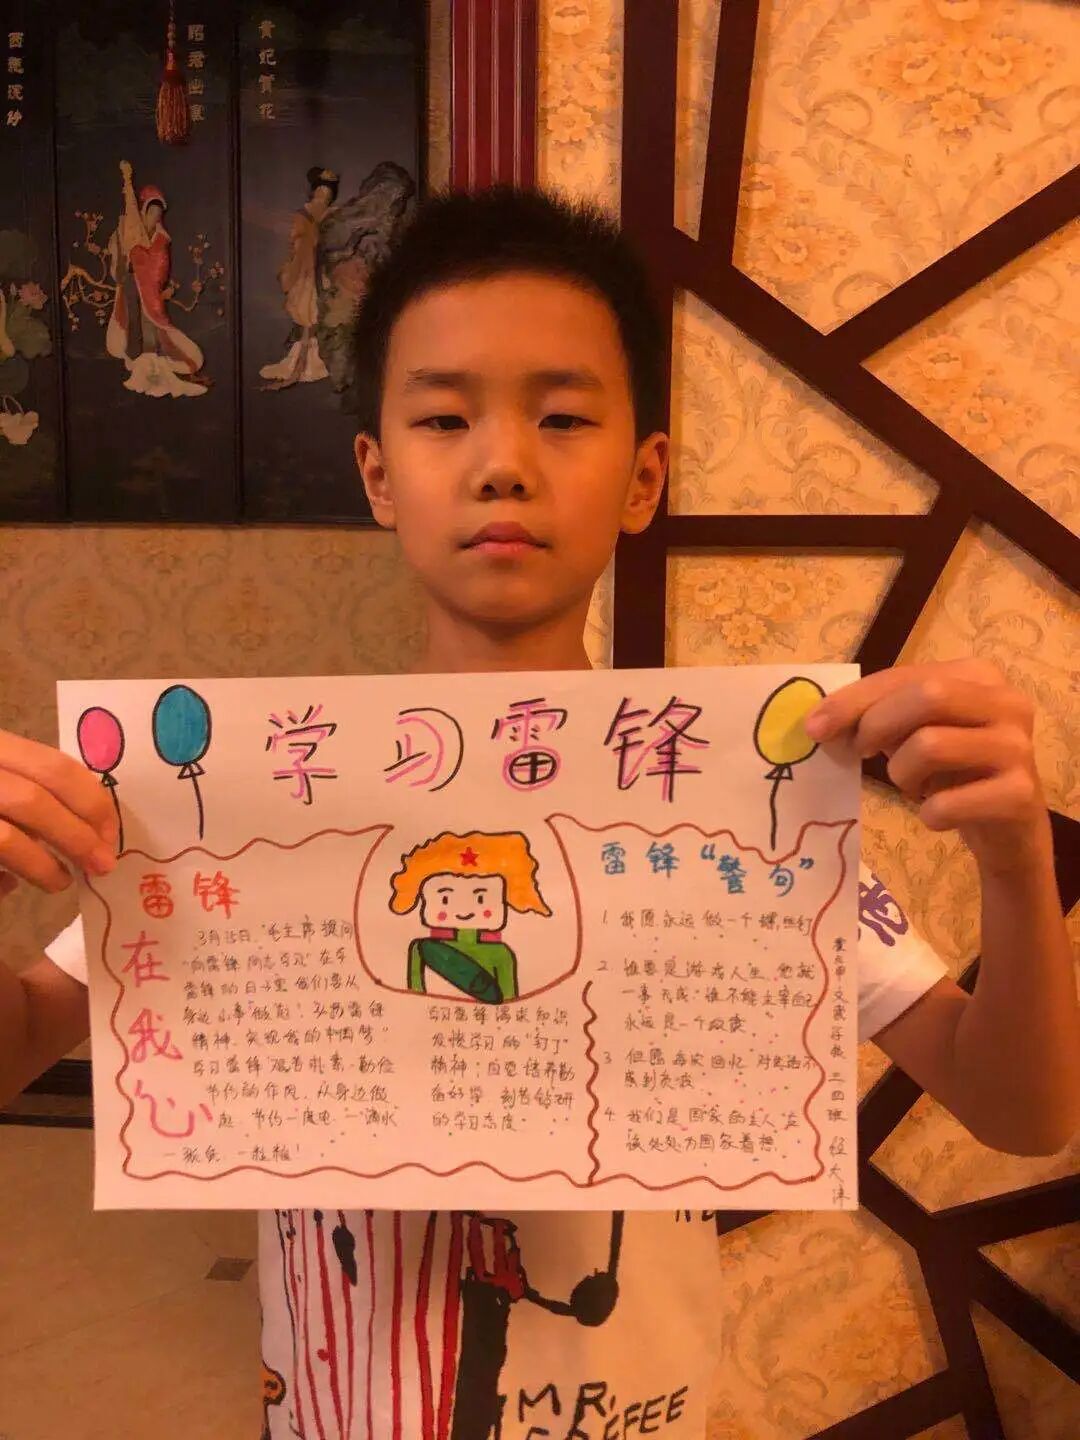 昭君出塞
贵妃赏花
学习雷锋
雷锋
在我心
3月15日,"毛主席提问
"向雷锋同志学习"在学
雷锋的日子里我们要从
身边小事做起,弘扬雷锋
精神,实现我的中国梦"
学习雷锋艰苦朴素,勤俭
节约的作风,从身边做
起,节约一度电,一滴水
一张纸,一粒粮!
学习雷锋渴求知识
及快学习的"钉子"
精神;自觉培养勤
奋好学 刻苦钻研
的学习态度
雷锋"警句"
1. 我愿永远做一个螺丝钉
2. 谁要是游戏人生,他就
一事无成;谁不能主宰自己
永远是一个奴隶
3. 但愿每次回忆,对生活不
感到负疚
4. 我们是国家的主人,应
该处处为国家着想
三四班
MR.
COFFEE